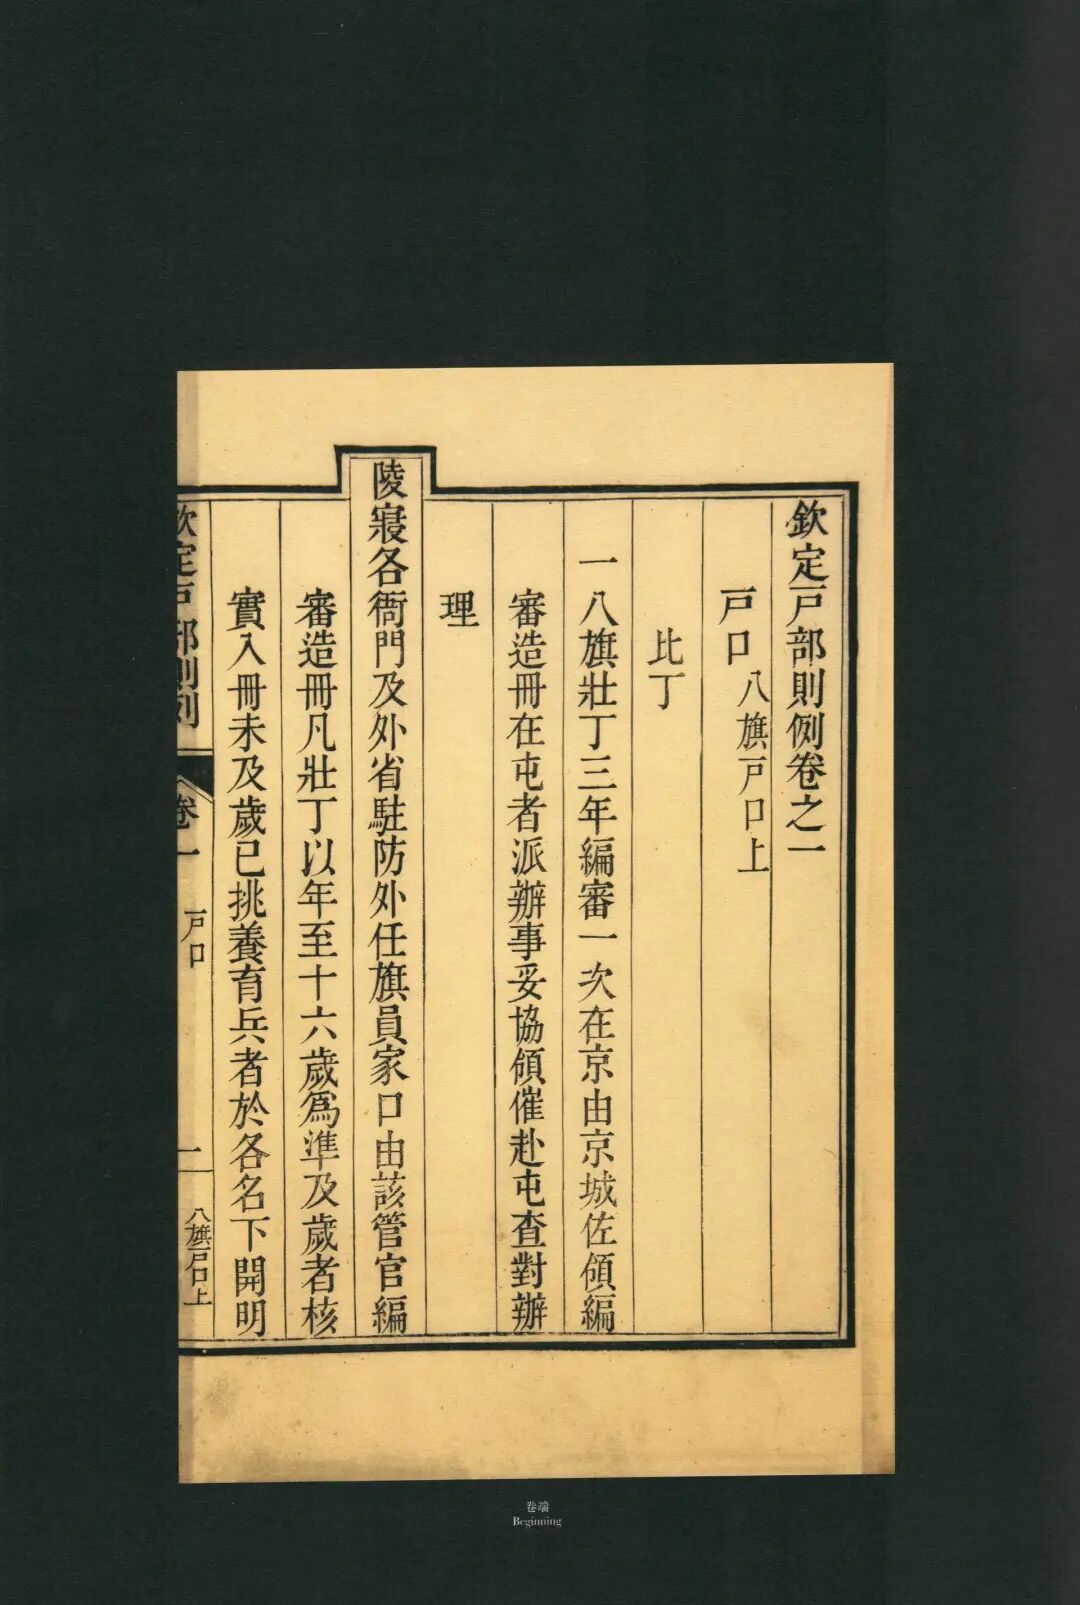 欽定戸部則例卷之一
戸口八旗戸口上
比丁
一八旗壯丁三年編審一次在京由京城佐領編
審造冊在屯者派辦事妥協領催赴屯查對辦
理
陵寢各衙門及外省駐防外任旗員家口由該管官編
審造冊凡壯丁以年至十六歲爲準及歲者核
實入冊未及歲已挑養育兵者於各名下開明
欽定戸部則例 卷一 戸口 一 八旗戸口上
卷端
Beginning